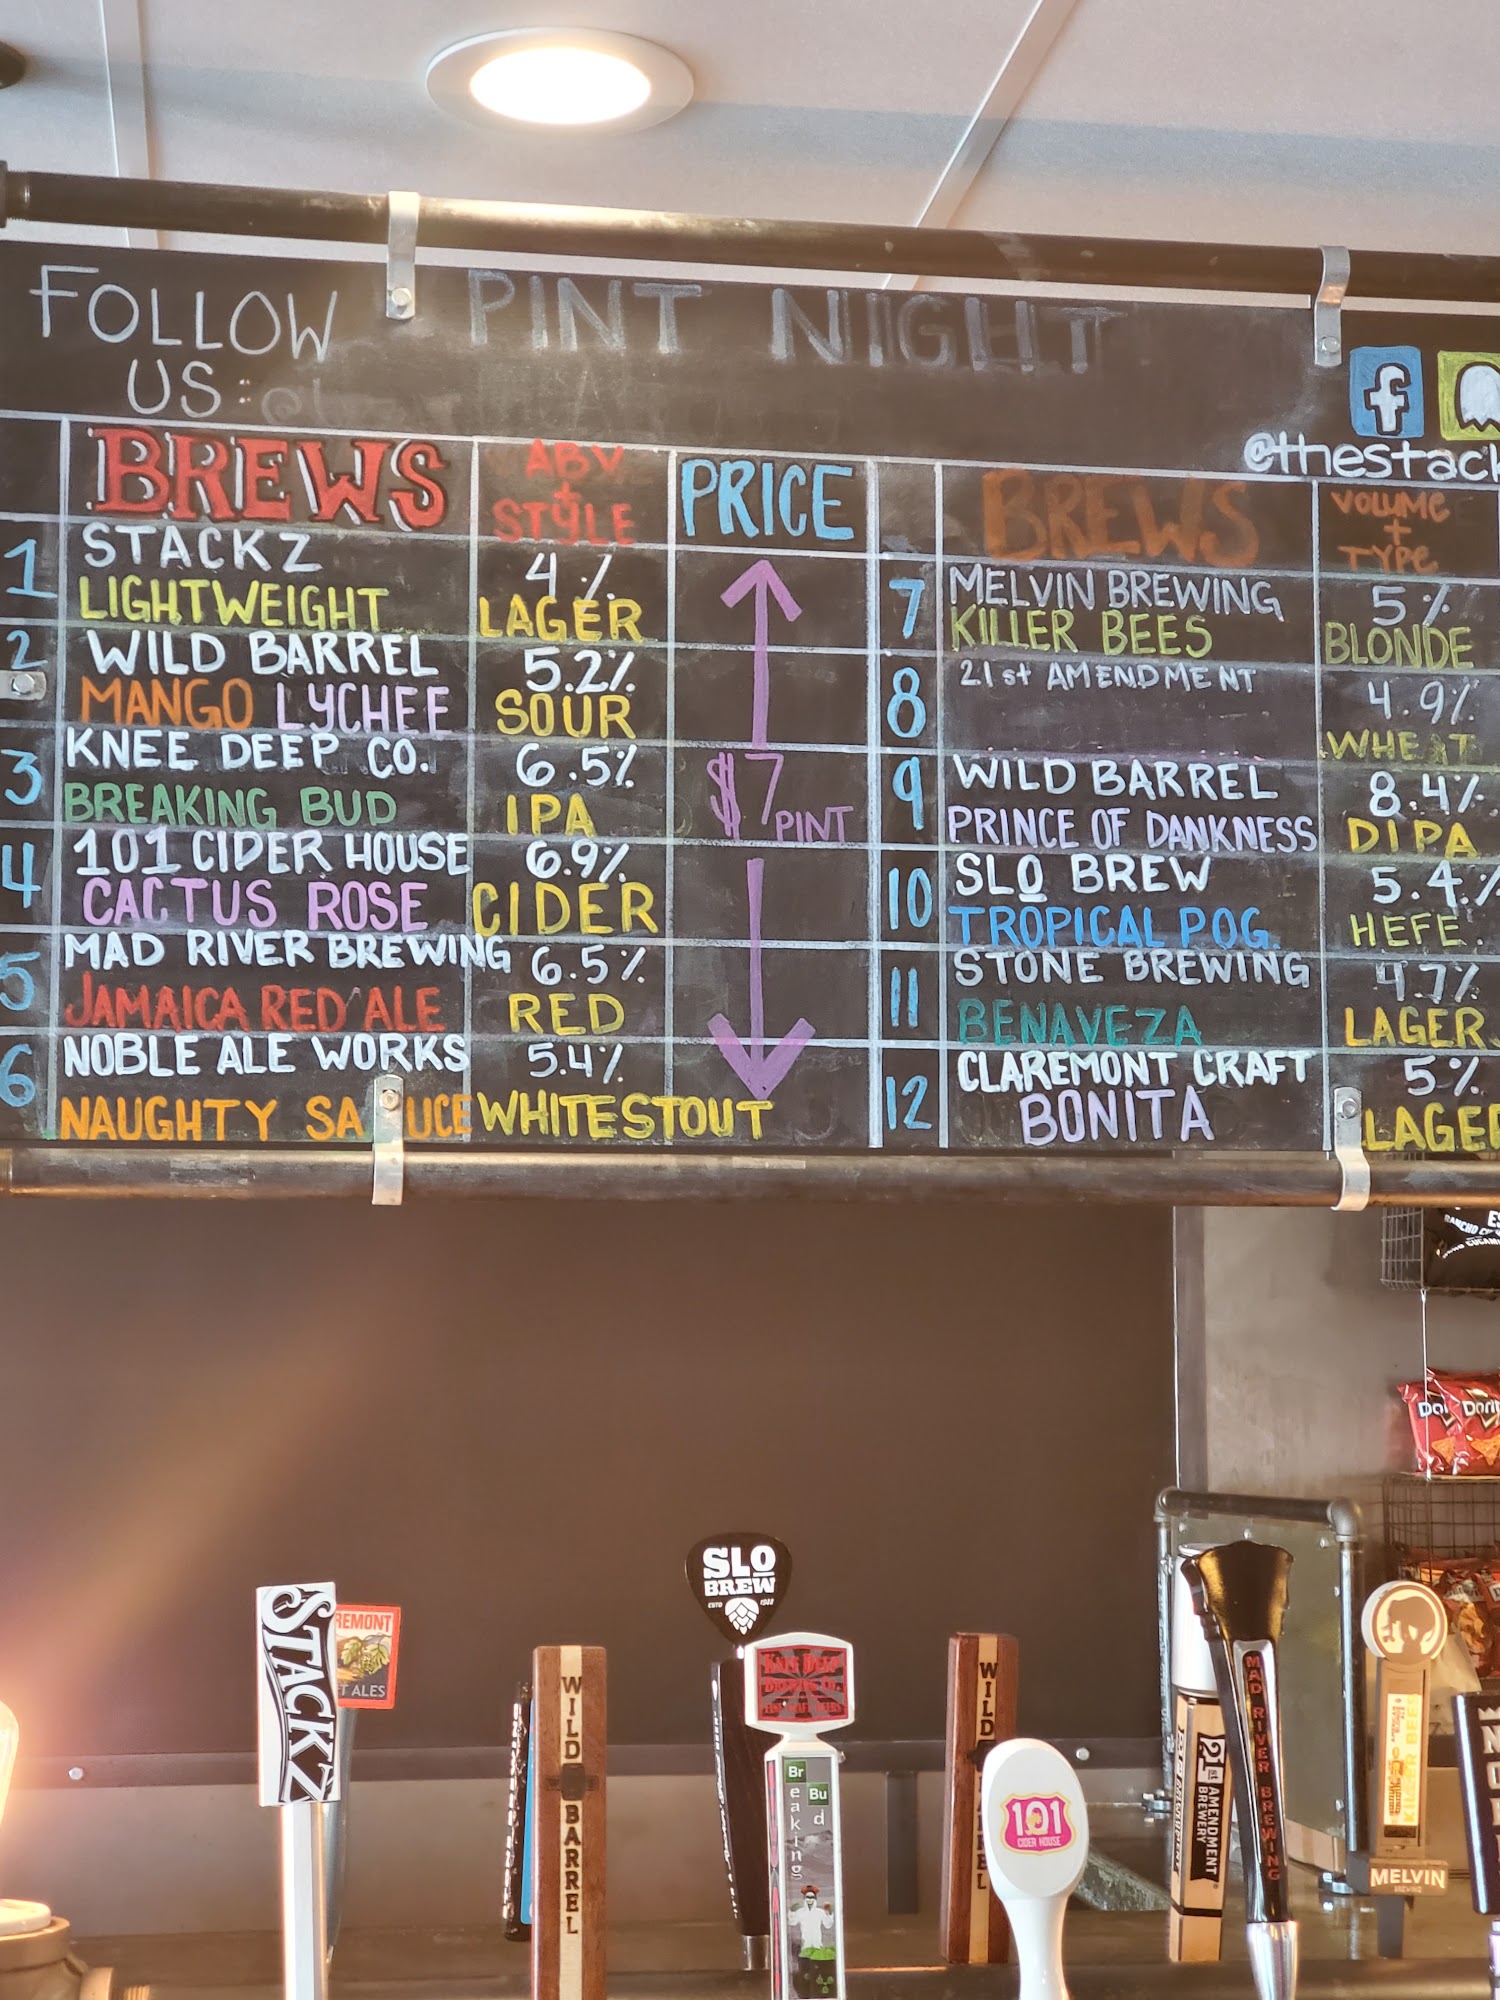 FOLLOW
US:
PINT NIGHT
@thestack
BREWS
ABV
+
STYLE
PRICE
1
STACKZ
4%
LIGHTWEIGHT
LAGER
2
WILD BARREL
5.2%
MANGO LYCHEE
SOUR
3
KNEE DEEP CO.
6.5%
BREAKING BUD
IPA
4
101 CIDER HOUSE
6.9%
CACTUS ROSE
CIDER
5
MAD RIVER BREWING
6.5%
JAMAICA RED ALE
RED
6
NOBLE ALE WORKS
5.4%
NAUGHTY SAUCE
WHITESTOUT
$7 PINT
BREWS
VOLUME
+
TYPE
7
MELVIN BREWING
5%
KILLER BEES
BLONDE
8
21st AMENDMENT
4.9%
WHEAT
9
WILD BARREL
8.4%
PRINCE OF DANKNESS
DIPA
10
SLO BREW
5.4%
TROPICAL POG.
HEFE.
11
STONE BREWING
4.7%
BENAVEZA
LAGER
12
CLAREMONT CRAFT
5%
BONITA
LAGER
Dorit
STACKZ
REMONT
FT ALES
WILD BARREL
SLO
BREW
ESTD 1988
KNEE DEEP
BREWING CO.
Br
eaking
Bu
d
WILD BARREL
101
CIDER HOUSE
21st AMENDMENT
BREWERY
MAD RIVER BREWING
KILLER BEES
MELVIN
BREWING